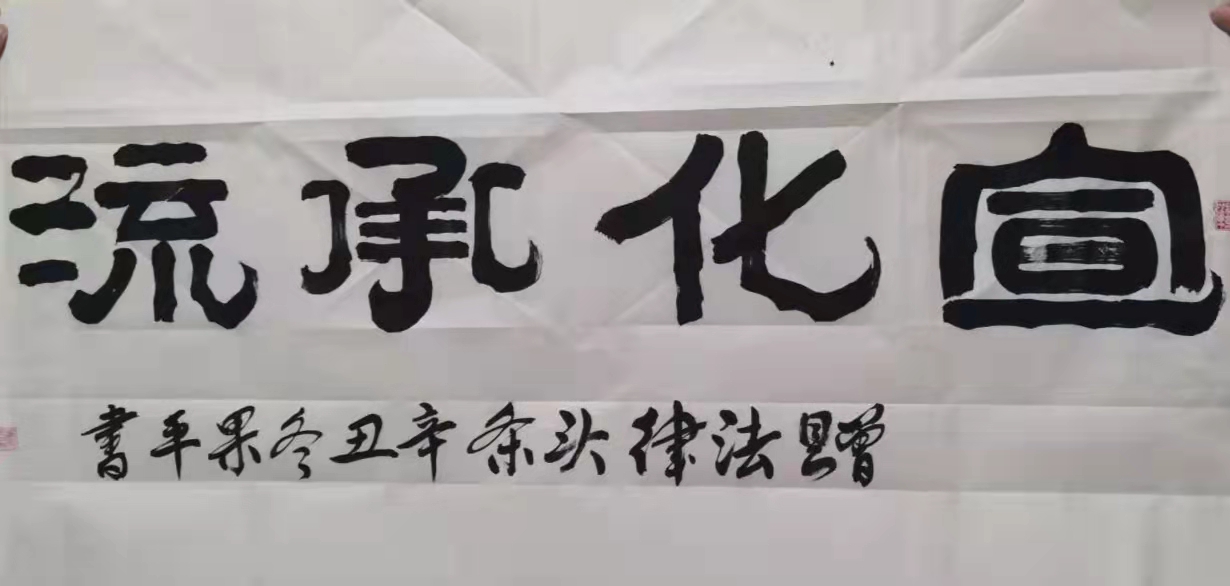 宣化承流
赠法律头条辛丑冬果平書